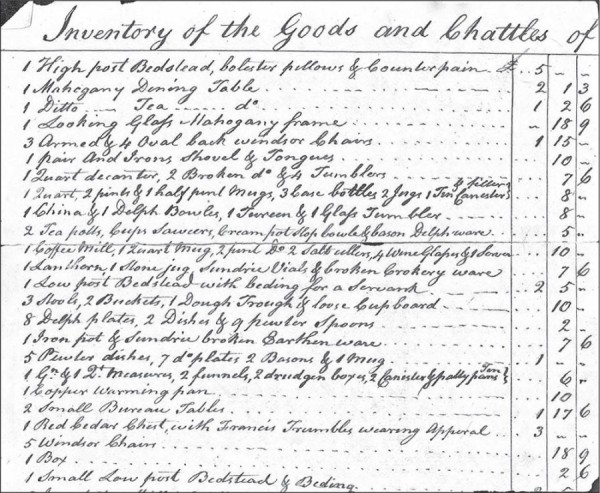 Inventory of the Goods and Chattles of
1 High post Bedstead, bolister pillows & Counterpain £ 5 " "
1 Mahogany Dining Table 2 1 3
1 Ditto Tea do 1 2 6
1 Looking Glass Mahogany frame " 18 9
3 Armed & 4 Oval back windsor Chairs 1 15 "
1 pair And Irons Shovel & Tongues 10 "
1 Quart decanter, 2 Broken do & 4 Tumblers 7 6
1 Quart, 2 pints & 1 half pint Mugs, 3 Case bottles 2 Jugs 1 Tin Canester & filler 8 "
1 China & 1 Delph Bowles, 1 Tureen & 1 Glass Tumbler 8 "
2 Tea potts, Cups Sawcers, Cream pot Slop bowle & bason Delph ware 5 "
1 Coffee Mill, 1 Quart Mug, 2 pint Do 2 Salt cellers, 4 Wine Glasses & 1 Server 10 "
1 Lanthorn, 1 Stone jug Sundrie Vials & broken Crokery ware 7 6
1 Low post Bedstead with beding for a Servant 2 5 "
3 Stools, 2 Buckets, 1 Dough Trough & loose Cupboard 10 "
8 Delph plates, 2 Dishes & 9 pewter Spoons 2 "
1 Iron pot & Sundrie broken Earthen ware 7 6
5 Pewter dishes, 7 do plates 2 Basons & 1 Mug 1 " "
1 Gn & 1 Qt Measures, 2 funnels, 2 drudgin boxes, 2 Canister & patty pans Tin 6 "
1 Copper Warming pan 10
2 Small Bureau Tables 1 17 6
1 Red Cedar Chest, with Francis Trumbles wearing Apperal 3 "
5 Windsor Chairs 18 9
1 Box 2 6
1 Small Low post Bedstead & Beding